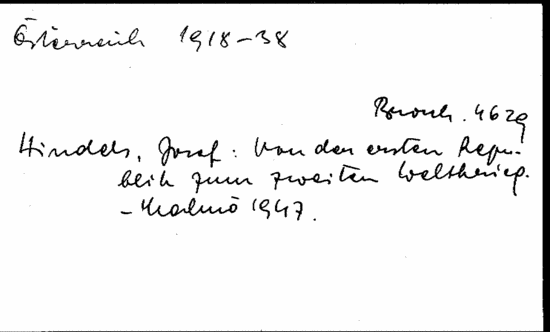 Österreich 1918-38
Brosch. 4629
Hindels, Josef: Von der ersten Repu-
blik zum zweiten Weltkrieg.
- Malmö 1947.